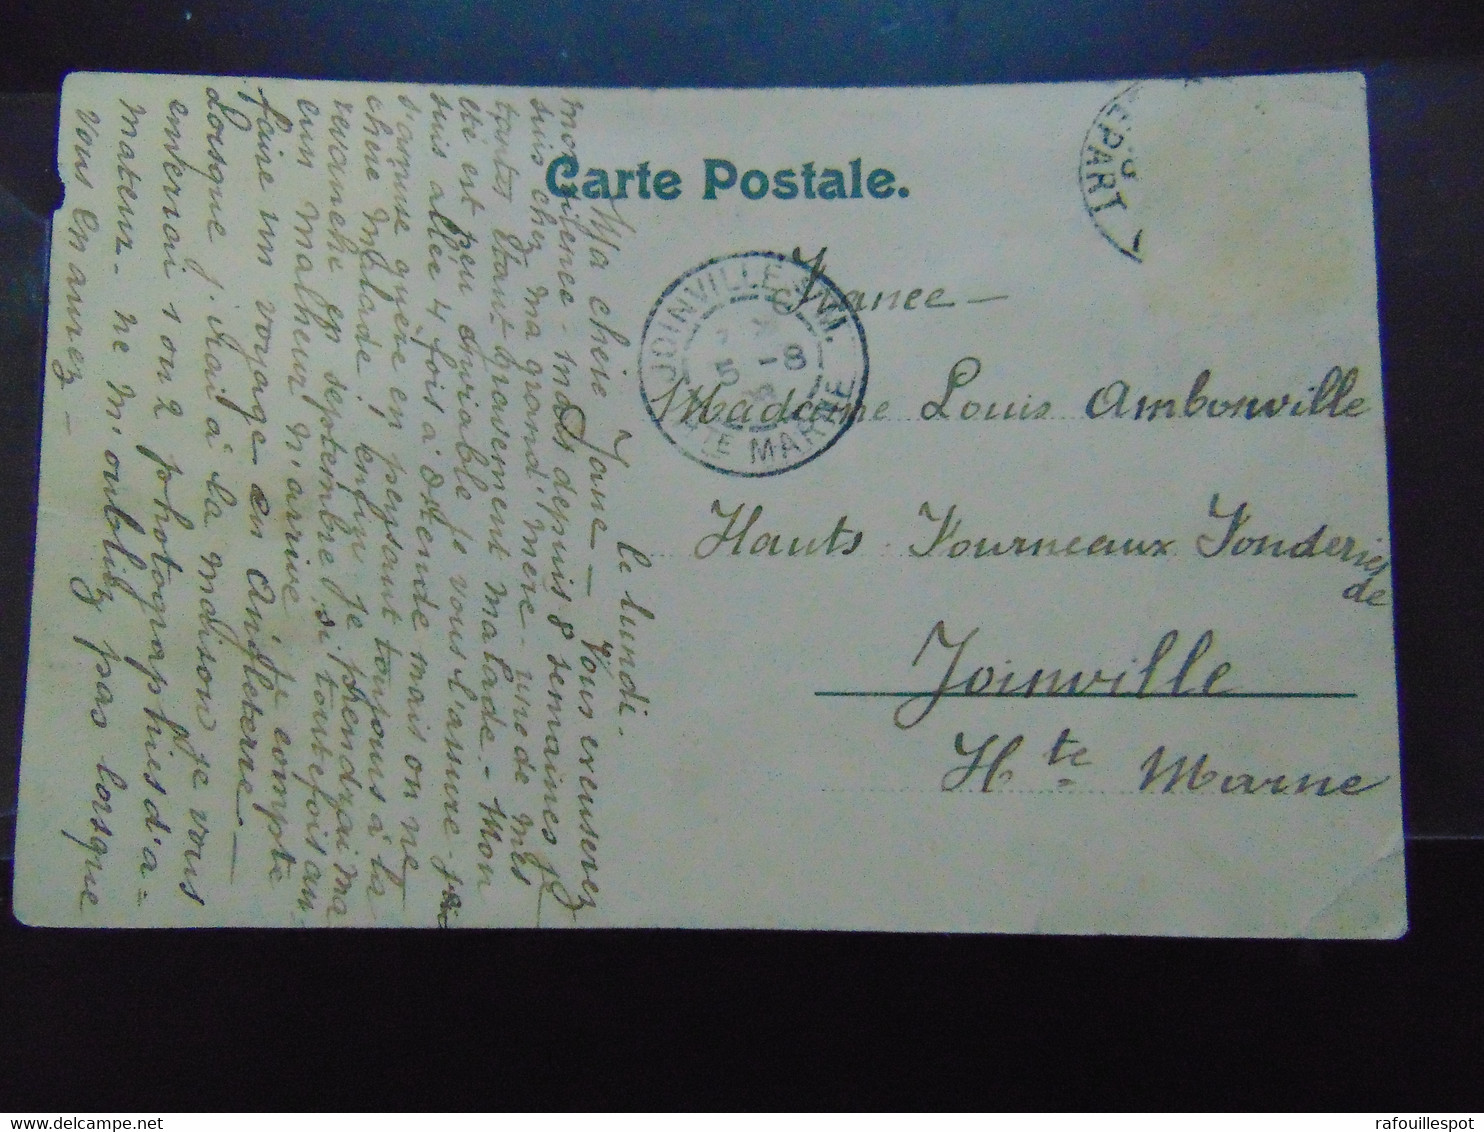 Carte Postale.
DEPART
JOINVILLE S/M.
5 -8
HTE MARNE
France -
Madame Louis Ambonville
Hauts Fourneaux Fonderies
de
Joinville
Hte Marne
le lundi.
Ma chère Jane - Vous excuserez
mon silence - mais depuis 8 semaines je
suis chez ma grand' mère - une de mes
tantes étant gravement malade. - Mon
été est peu enviable je vous l'assure - j'ai
suis allée 4 fois à Ostende mais on ne
s'amuse guère en pensant toujours à la
chère malade ! enfin je prendrai ma
revanche en septembre, si toutefois au-
cun malheur n'arrive je compte
faire un voyage en Angleterre -
Lorsque j'irai à la maison je vous
enverrai 1 ou 2 photographies d'a-
mateur. ne m'oubliez pas lorsque
vous en aurez -
rafouillespot